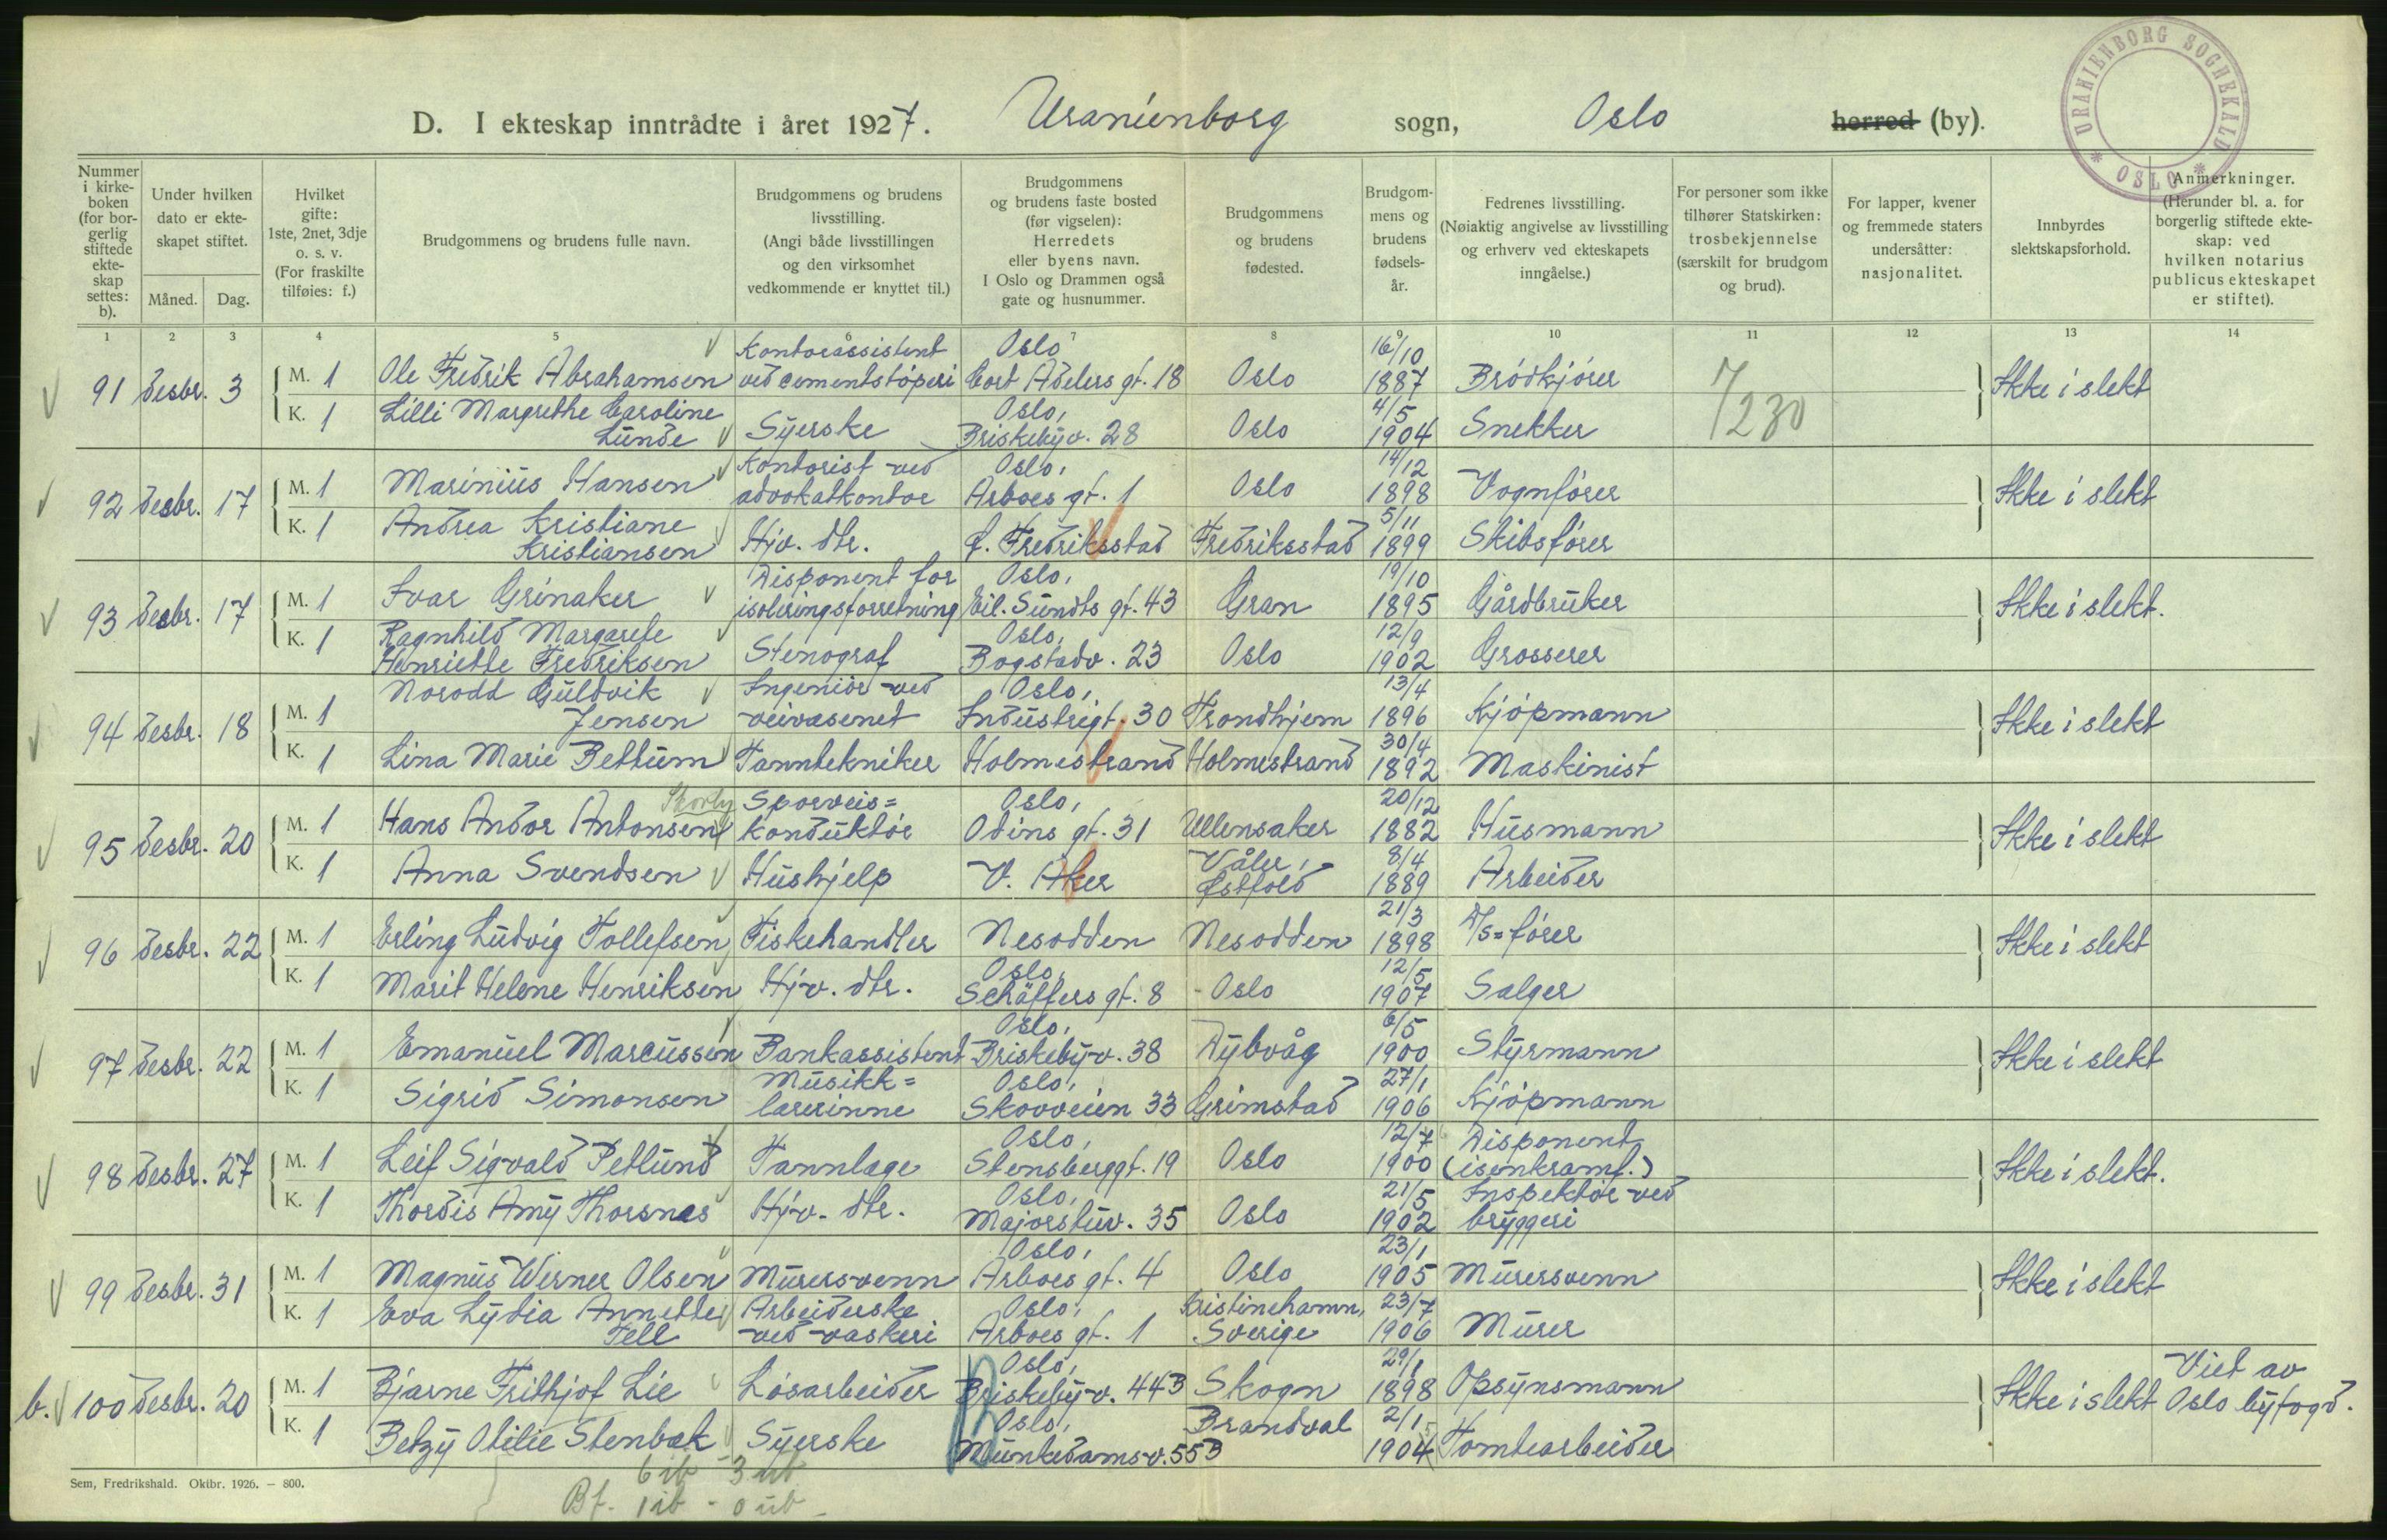 D. I ekteskap inntrådte i året 1927. Uranienborg sogn, Oslo herred (by).
URANIENBORG SOGNEKALD * OSLO *
Nummer i kirke- boken (for bor- gerlig stiftede ekte- skap settes: b).
Under hvilken dato er ekte- skapet stiftet.
Måned. Dag.
Hvilket gifte: 1ste, 2net, 3dje o. s. v. (For fraskilte tilføies: f.)
Brudgommens og brudens fulle navn.
Brudgommens og brudens livsstilling. (Angi både livsstillingen og den virksomhet vedkommende er knyttet til.)
Brudgommens og brudens faste bosted (før vigselen): Herredets eller byens navn. I Oslo og Drammen også gate og husnummer.
Brudgommens og brudens fødested.
Brudgom- mens og brudens fødsels- år.
Fedrenes livsstilling. (Nøiaktig angivelse av livsstilling og erhverv ved ekteskapets inngåelse.)
For personer som ikke tilhører Statskirken: trosbekjennelse (særskilt for brudgom og brud).
For lapper, kvener og fremmede staters undersåtter: nasjonalitet.
Innbyrdes slektskapsforhold.
Anmerkninger. (Herunder bl. a. for borgerlig stiftede ekte- skap: ved hvilken notarius publicus ekteskapet er stiftet).
1 2 3 4 5 6 7 8 9 10 11 12 13 14
91 Desbr. 3 M. 1 Ole Fredrik Abrahamsen Kontorassistent ved cementstöperi Oslo Cort Adelers gt. 18 Oslo 16/10 1887 Brödkjörer 7/230 Ikke i slekt
K. 1 Lilli Margrethe Caroline Lunde Syerske Oslo, Briskebyv. 28 Oslo 4/5 1904 Snekker
92 Desbr. 17 M. 1 Marinius Hansen Kontorist ved advokatkontor Oslo, Arboes gt. 1 Oslo 14/12 1898 Vognförer Ikke i slekt
K. 1 Andrea Kristiane Kristiansen Hjv. dtr. Fredriksstad Fredriksstad 5/11 1899 Skibsförer
93 Desbr. 17 M. 1 Ivar Grinaker Disponent for isoleringsforretning Oslo, Eil. Sundts gt. 43 Gran 19/10 1895 Gårdbruker Ikke i slekt.
K. 1 Ragnhild Margarete Henriette Fredriksen Stenograf Oslo, Bogstadv. 23 Oslo 12/9 1902 Grosserer
94 Desbr. 18 M. 1 Norodd Guldvik Jensen Ingeniör ved veivesenet Oslo, Industrigt. 30 Trondhjem 13/4 1896 Kjöpmann Ikke i slekt
K. 1 Lina Marie Bettum Tanntekniker Holmestrand Holmestrand 30/4 1892 Maskinist
95 Desbr. 20 M. 1 Hans Andor Antonsen Sporveis= konduktör Oslo, Odins gt. 31 Ullensaker 20/12 1882 Husmann Ikke i slekt
K. 1 Anna Svendsen Hushjelp V. Aker Våler, Østfold 8/4 1889 Arbeider
96 Desbr. 22 M. 1 Erling Ludvig Tollefsen Fiskehandler Nesodden Nesodden 21/3 1898 D/s=förer Ikke i slekt
K. 1 Marit Helene Henriksen Hjv. dtr. Oslo, Schäffers gt. 8 Oslo 12/5 1907 Selger
97 Desbr. 22 M. 1 Emanuel Marcussen Bankassistent Oslo, Briskebyv. 38 Dybvåg 6/5 1900 Styrmann Ikke i slekt
K. 1 Sigrid Simonsen Musikk= lærerinne Oslo, Skovveien 33 Grimstad 27/1 1906 Kjöpmann
98 Desbr. 27 M. 1 Leif Sigvald Petlund Tannlæge Oslo, Stensberggt. 19 Oslo 12/7 1900 Disponent (isenkramf.) Ikke i slekt.
K. 1 Thordis Amy Thorsnæs Hjv. dtr. Oslo, Majorstuv. 35 Oslo 21/5 1902 Inspektör ved bryggeri
99 Desbr. 31 M. 1 Magnus Werner Olsen Murersvenn Oslo, Arboes gt. 4 Oslo 23/1 1905 Murersvenn Ikke i slekt
K. 1 Eva Lydia Annette Fell Arbeiderske ved vaskeri Oslo, Arboes gt. 1 Kristinehamn, Sverige 23/7 1906 Murer
b. 100 Desbr. 20 M. 1 Bjarne Frithjof Lie Lösarbeider Oslo, Briskebyv. 44B Skogn 29/1 1898 Opsynsmann Ikke i slekt Viet av Oslo byfogd.
K. 1 Betzy Otilie Stenbæk Syerske Oslo, Munkedamsv. 55B Brandval 2/1 1904 Tomtearbeider
6 ib - 3 ub
Bf. 1 ib - 0 ub
Sem, Fredrikshald. Oktbr. 1926. - 800.